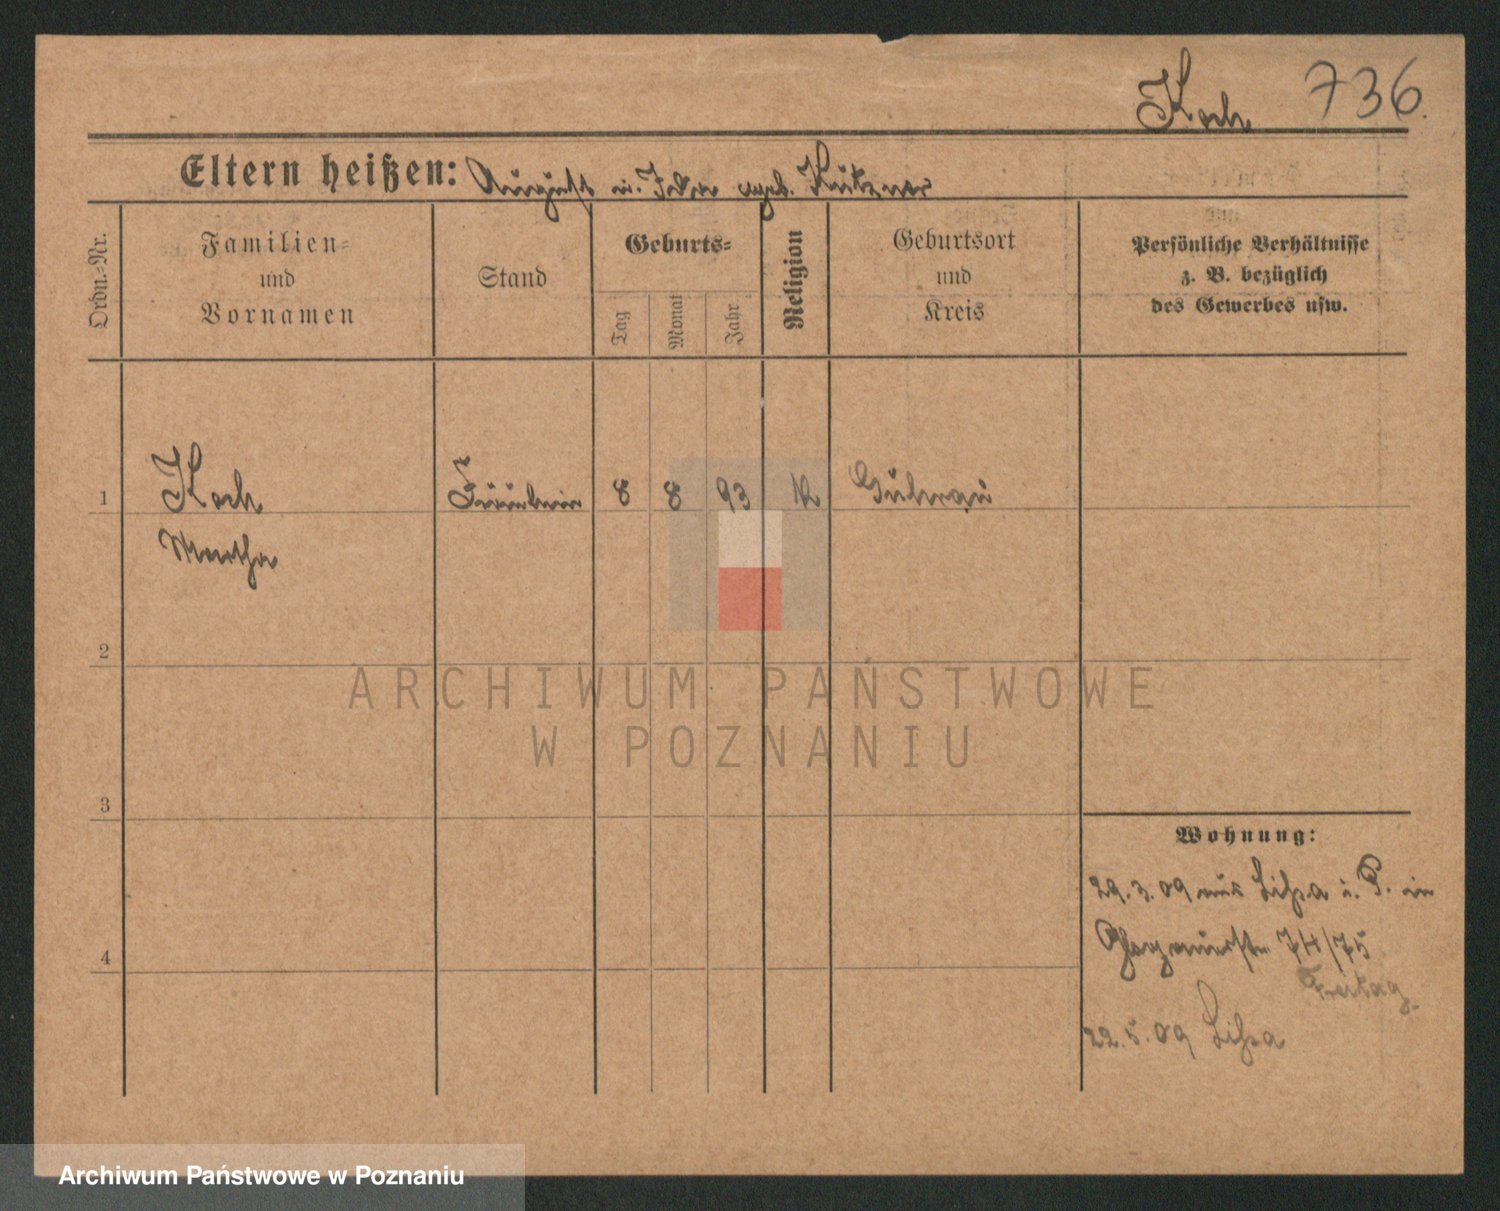 Koch 736.
Eltern heißen: August u. Ida geb. Kutzner
Ordn.-Nr.
Familien-
und
Vornamen
Stand
Geburts-
Tag
Monat
Jahr
Religion
Geburtsort
und
Kreis
Persönliche Verhältnisse
z. B. bezüglich
des Gewerbes usw.
1 Koch Fräulein 8 8 93 K Guhrau
Martha
2
ARCHIWUM PAŃSTWOWE
W POZNANIU
3
Wohnung:
29.3.09 aus Lissa i. P. in
Glogauerstr 74/75
4
Freitag
22.5.09 Lissa
Archiwum Państwowe w Poznaniu